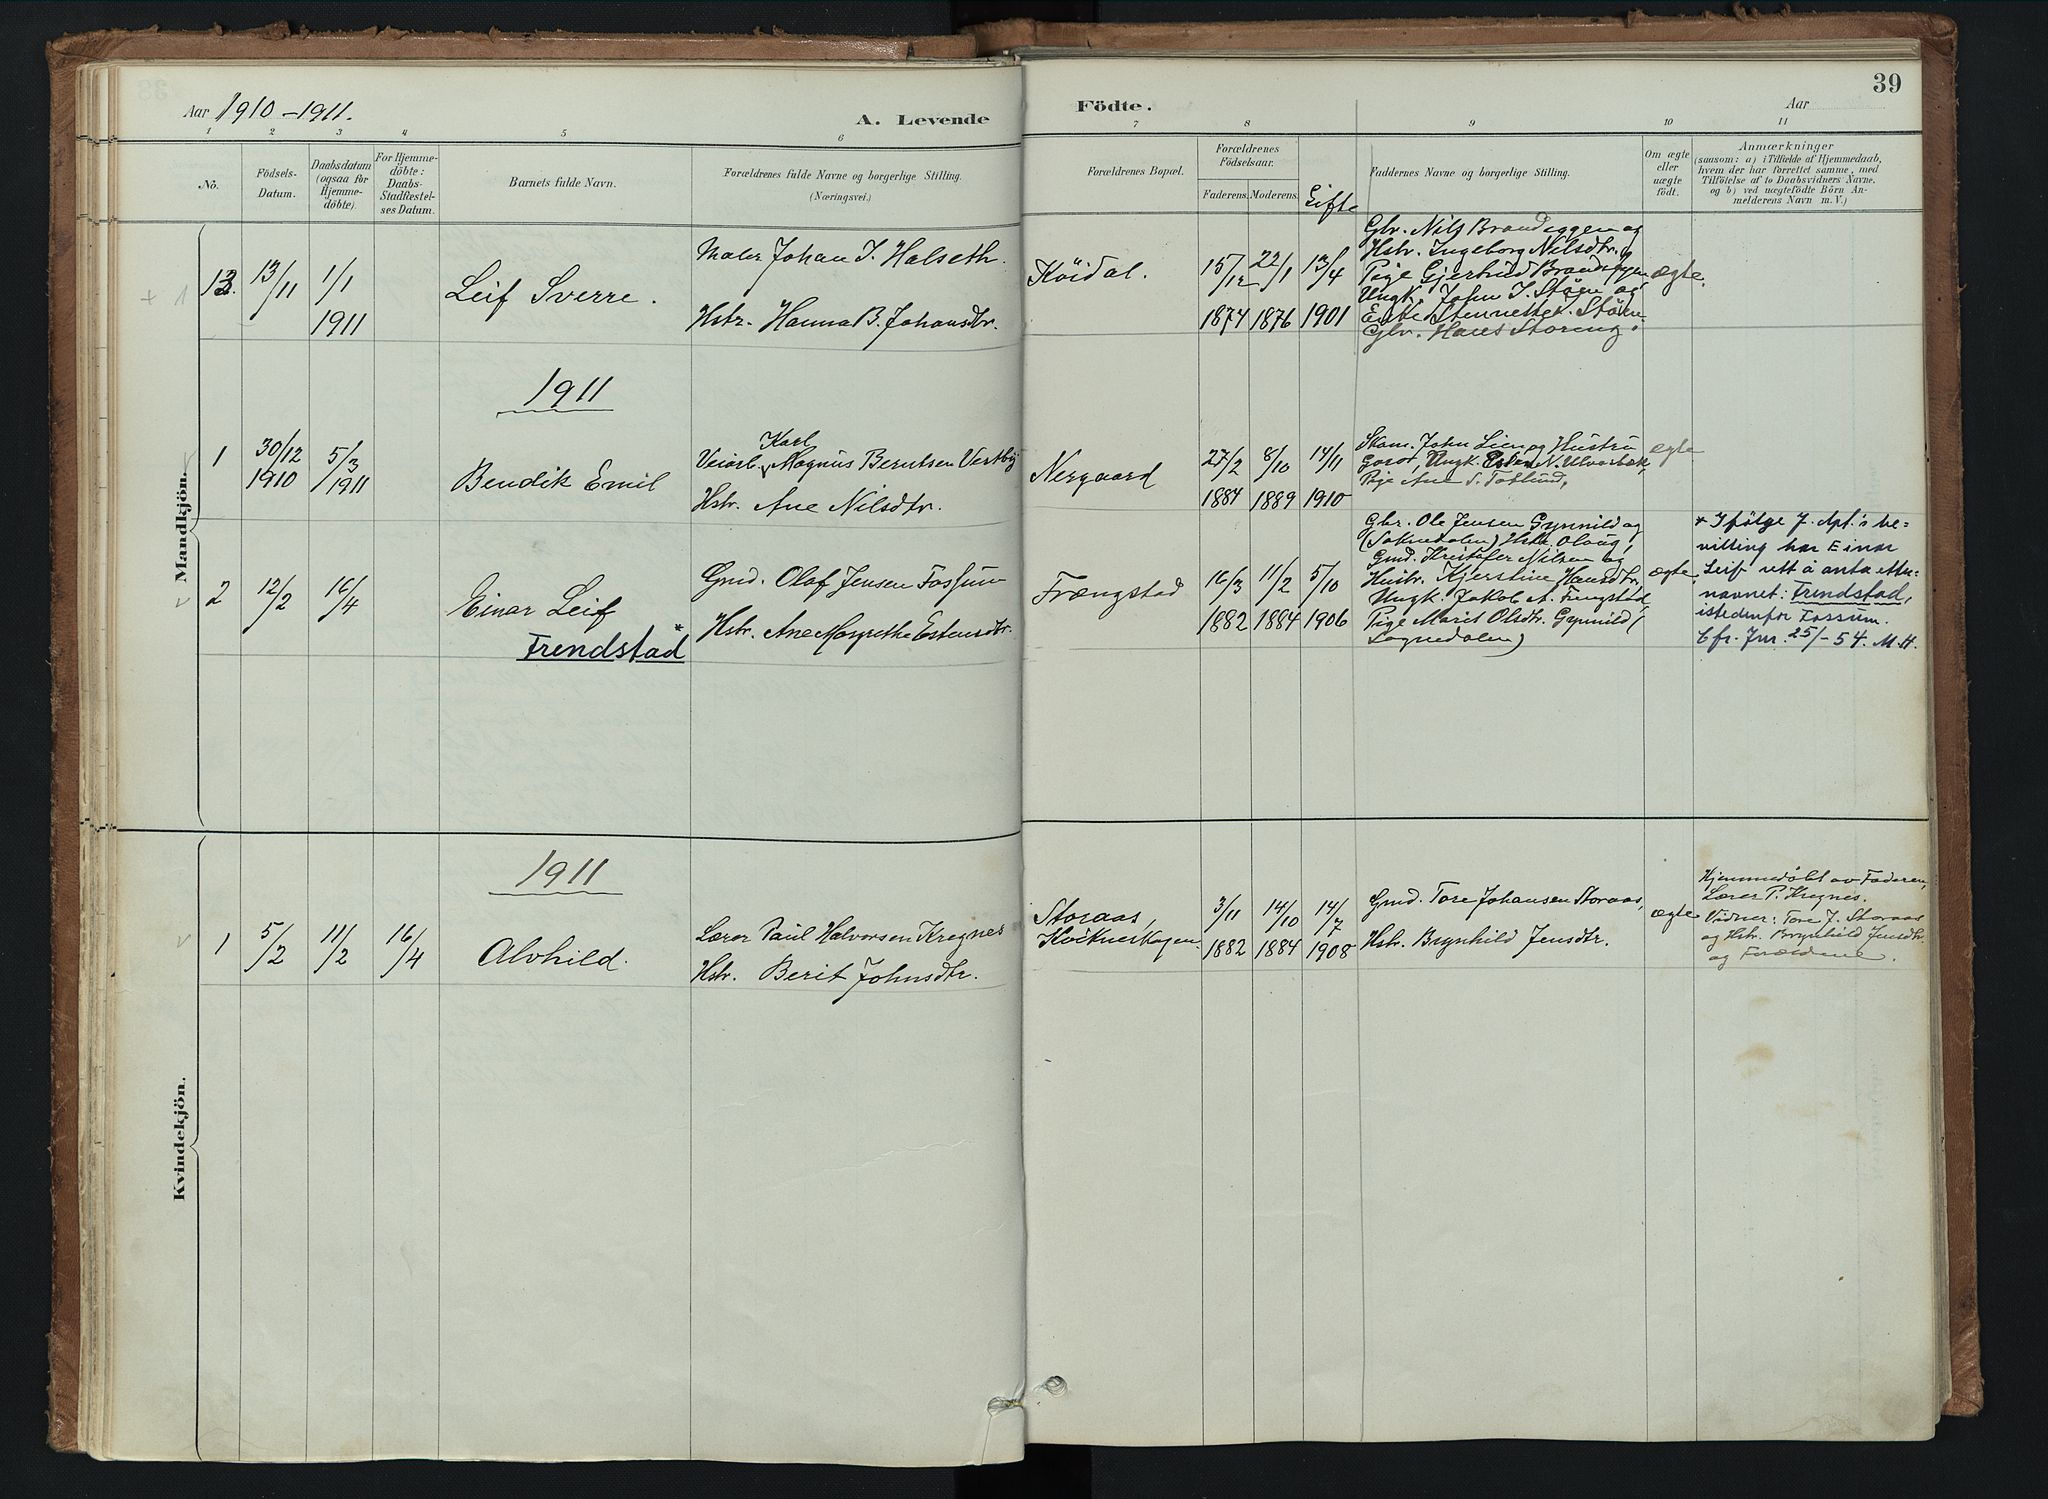 39
Aar 1910-1911.
A. Levende
Födte.
Aar
1 2 3 4 5 6 7 8 9 10 11
No.
Födsels-
Datum.
Daabsdatum
(ogsaa for
Hjemme-
döbte).
For Hjemme-
döbte:
Daabs-
Stadfæstel-
ses Datum.
Barnets fulde Navn.
Forældrenes fulde Navne og borgerlige Stilling.
(Næringsvei.)
Forældrenes Bopæl.
Forældrenes
Födselsaar.
Faderens. Moderens.
Gifte
Faddernes Navne og borgerlige Stilling.
Om ægte
eller
uægte
født.
Anmærkninger
(saasom: a) i Tilfælde af Hjemmedaab,
hvem der har forrettet samme, med
Tilföielse af to Daabsvidners Navne.
og b) ved uægtefödte Börn An-
melderens Navn m. V.)
Mandkjön.
13/11
1/1
1911
Leif Sverre.
Maler Johan J. Halseth.
Hstr. Hanna B. Johansdtr.
Köidal.
15/12 1874
22/1 1876
13/4 1901
Gbr. Nils Brandeggen og
Hstr. Ingeborg Nilsdtr. og
Pige Gjertrud Brandeggen
Ungk. John J. Stöen og
Enke Stöen
Gbr. Hans Storeng.
ægte.
1911
1
30/12
1910
5/3
1911
Bendik Emil
Karl
Veiarb. Magnus Berntsen Vestby
Hstr. Ane Nilsdtr.
Nergaard
27/2 1884
8/10 1889
14/11 1910
Skom. John Lien og Hustru
Goro, Ungk. N. Ulvosbæk,
Pige Ane S.
ægte
2
12/2
16/4
Einar Leif
*
Frendstad
Gmd. Olaf Jensen Fossum
Hstr. Ane Margrethe Estensdtr.
Frængstad
16/3 1882
11/2 1884
5/10 1906
Gbr. Ole Jensen Gynnild og
(Soknedalen) Hstr. Olaug,
Gmd. Kristofer Nilsen og
Hustr. Kjerstine Hansdtr,
Ungk. Jakob A. Frengstad,
Pige Marit Olsdtr. Gynnild (
Sognedalen)
ægte
* Ifölge J. dpt.'s be-
villing har Einar
Leif rett å anta etter-
navnet: Frendstad,
istedenfor Fossum.
Cfr. Jnr. 25/-54. M.H.
Kvindekjön.
1911
1
5/2
11/2
16/4
Alvhild.
Lærer Paul Halvorsen Kregnes
Hstr. Berit Johnsdtr.
Storaas,
Kvikneskogen
3/11 1882
14/10 1884
14/7 1908
Gmd. Tore Johansen Storaas,
Hstr. Brynhild Jensdtr.
ægte
Hjemmedöbt av Faderen,
Lærer P. Kregnes.
Vidner: Tore J. Storaas
og Hstr. Brynhild Jensdtr.
og Forældrene.